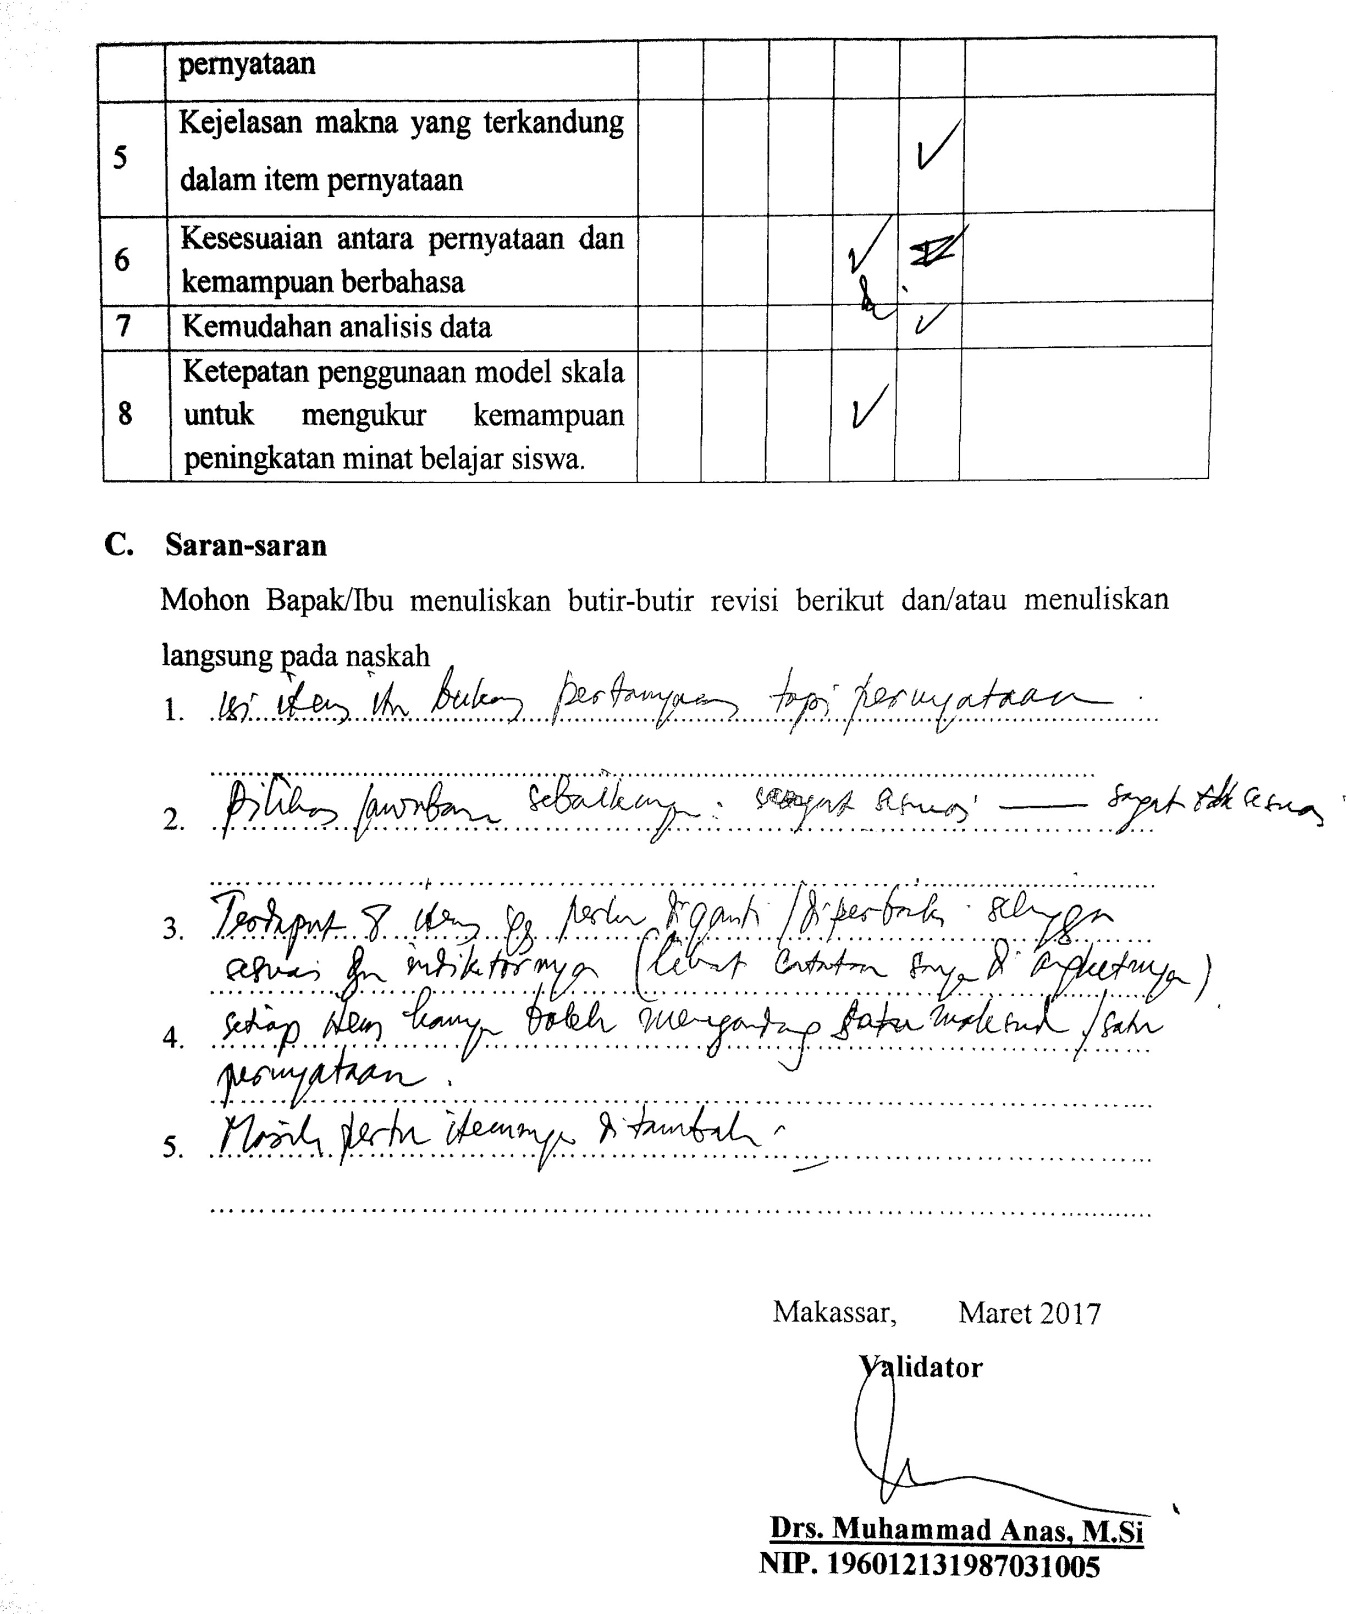 pernyataan
5 Kejelasan makna yang terkandung ✓
dalam item pernyataan
6 Kesesuaian antara pernyataan dan ✓
kemampuan berbahasa
7 Kemudahan analisis data ✓
8 Ketepatan penggunaan model skala
untuk mengukur kemampuan ✓
peningkatan minat belajar siswa.
C. Saran-saran
Mohon Bapak/Ibu menuliskan butir-butir revisi berikut dan/atau menuliskan
langsung pada naskah
1. isi item itu bukan pertanyaan tapi pernyataan.
2. pilihan jawaban sebaiknya: sangat sesuai — sangat tdk sesuai
3. Terdapat 8 item yg perlu diganti/diperbaiki sehingga
sesuai dgn indikatornya (lihat catatan saya di angketnya)
4. setiap item hanya boleh mengandung satu maksud/satu
pernyataan.
5. Masih perlu itemnya ditambah.
Makassar, Maret 2017
Validator
Drs. Muhammad Anas, M.Si
NIP. 196012131987031005